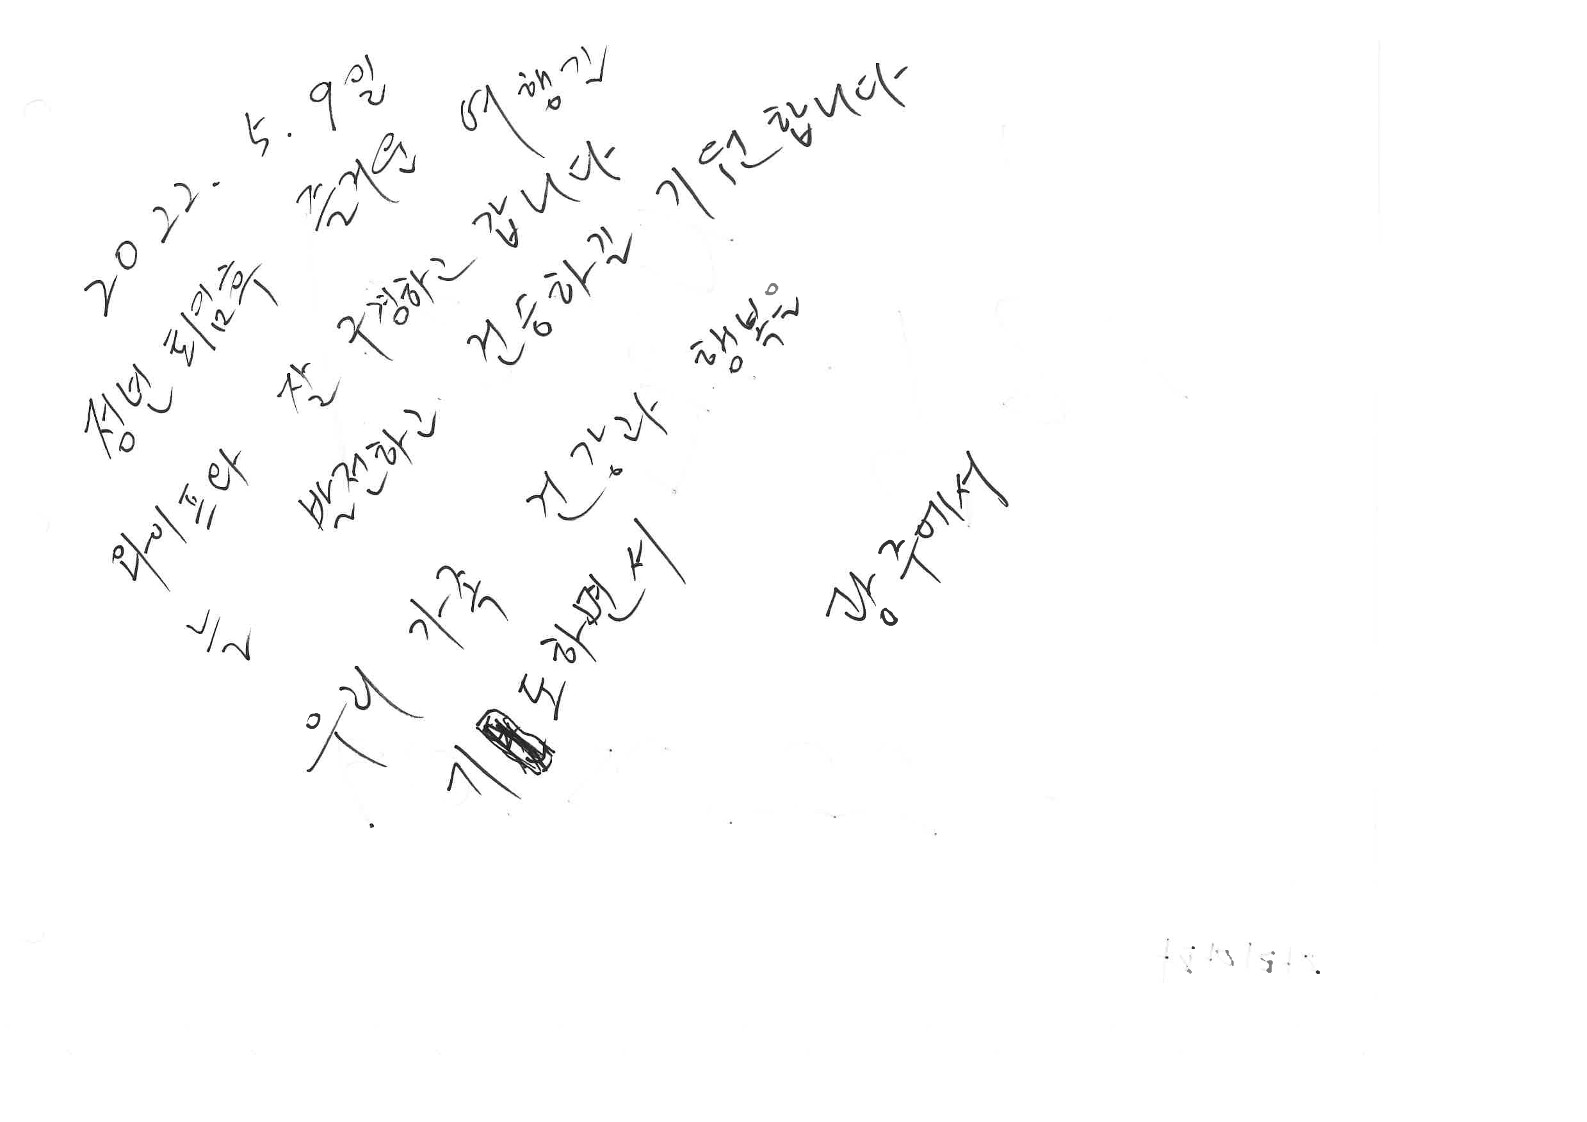 2022. 5. 9일
정년 퇴임후 즐거운 여행길
와이프랑 잘 구경하고 갑니다
늘 발전하고 건승하길 기원합니다
우리 가족 건강과 행복을
기도하면서
광주에서